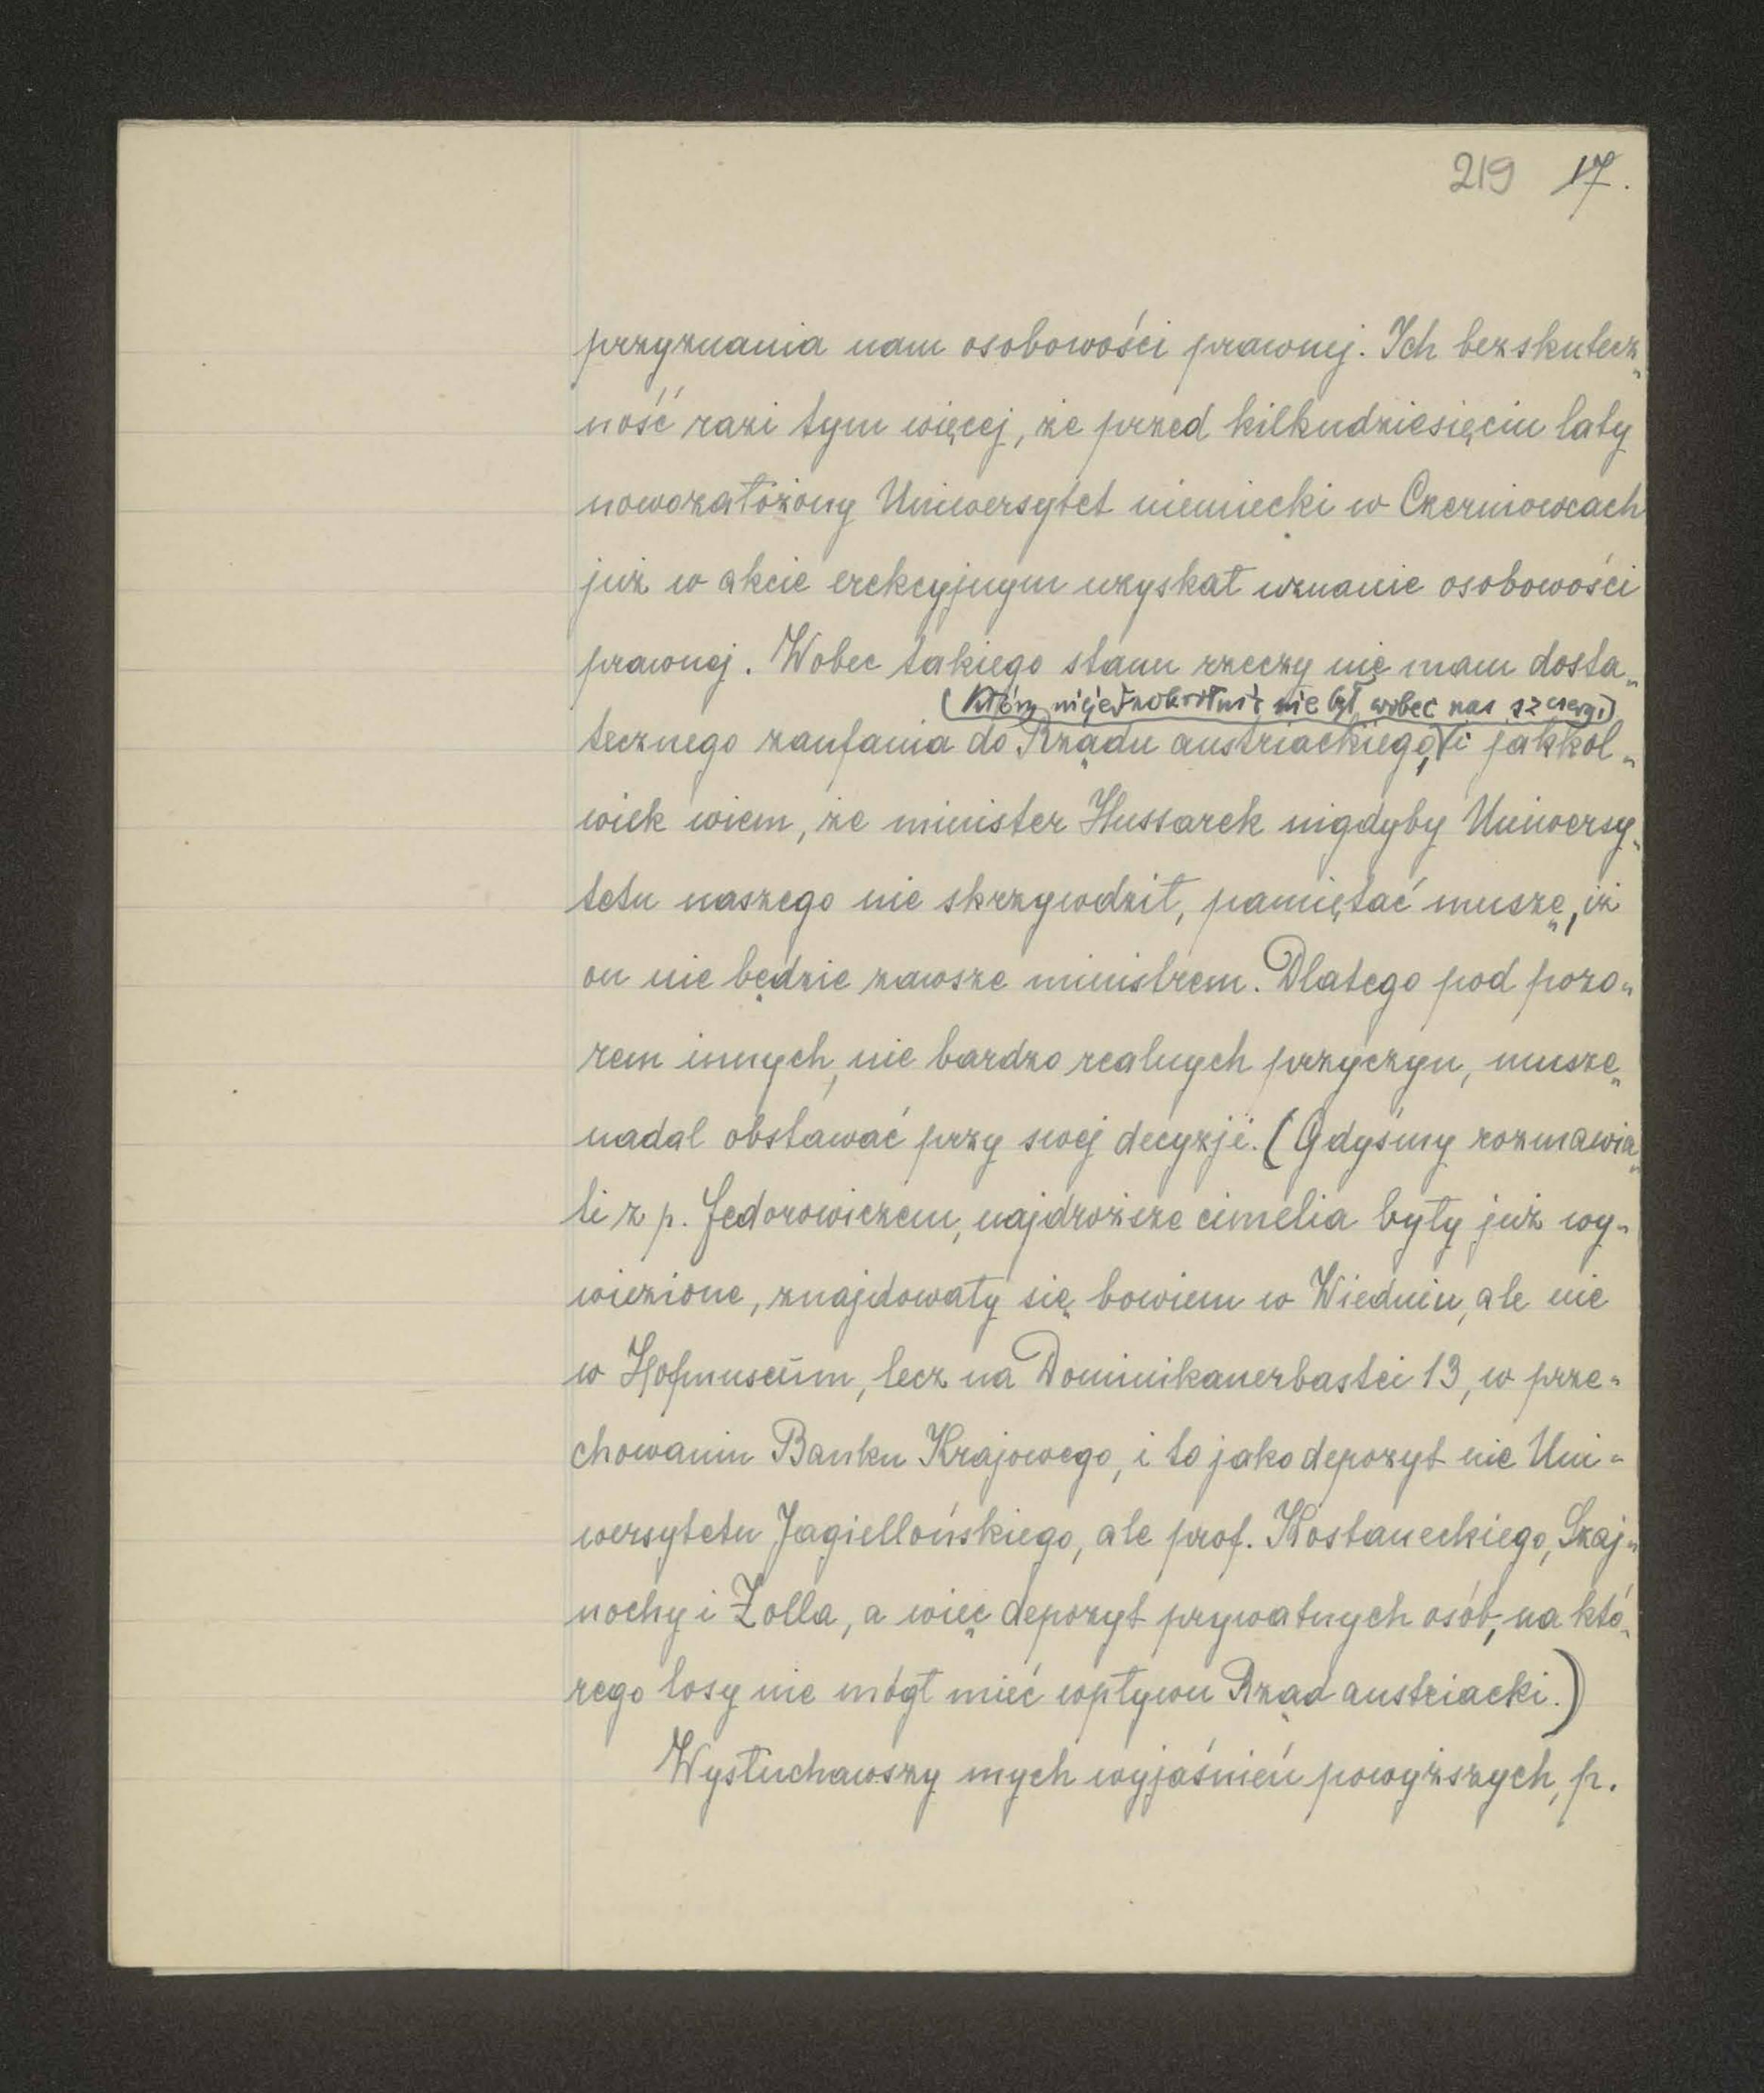 219 17.
przyznania nam osobowości prawnej. Ich bezskutecz„
ność razi tym więcej, że przed kilkudziesięciu laty
nowozałożony Uniwersytet niemiecki w Czerniowcach
już w akcie erekcyjnym uzyskał uznanie osobowości
prawnej. Wobec takiego stanu rzeczy nie mam dosta„
(który niejednokrotnie nie był wobec nas szczery)
tecznego zaufania do Rządu austriackiego, i jakkol„
wiek wiem, że minister Hussarek nigdyby Uniwersy„
tetu naszego nie skrzywdził, pamiętać muszę, iż
on nie będzie zawsze ministrem. Dlatego pod pozo„
rem innych, nie bardzo realnych przyczyn, muszę
nadal obstawać przy swej decyzji. (Gdyśmy rozmawia„
li z p. Fedorowiczem, najdroższe cimelia były już wy„
wiezione, znajdowały się bowiem w Wiedniu, ale nie
w Hofmuseum, lecz na Dominikanerbastei 13, w prze„
chowaniu Banku Krajowego, i to jako depozyt nie Uni„
wersytetu Jagiellońskiego, ale prof. Kostaneckiego, Szaj„
nochy i Zolla, a więc depozyt prywatnych osób, na któ„
rego losy nie mógł mieć wpływu Rząd austriacki.)
Wysłuchawszy mych wyjaśnień powyższych, p.